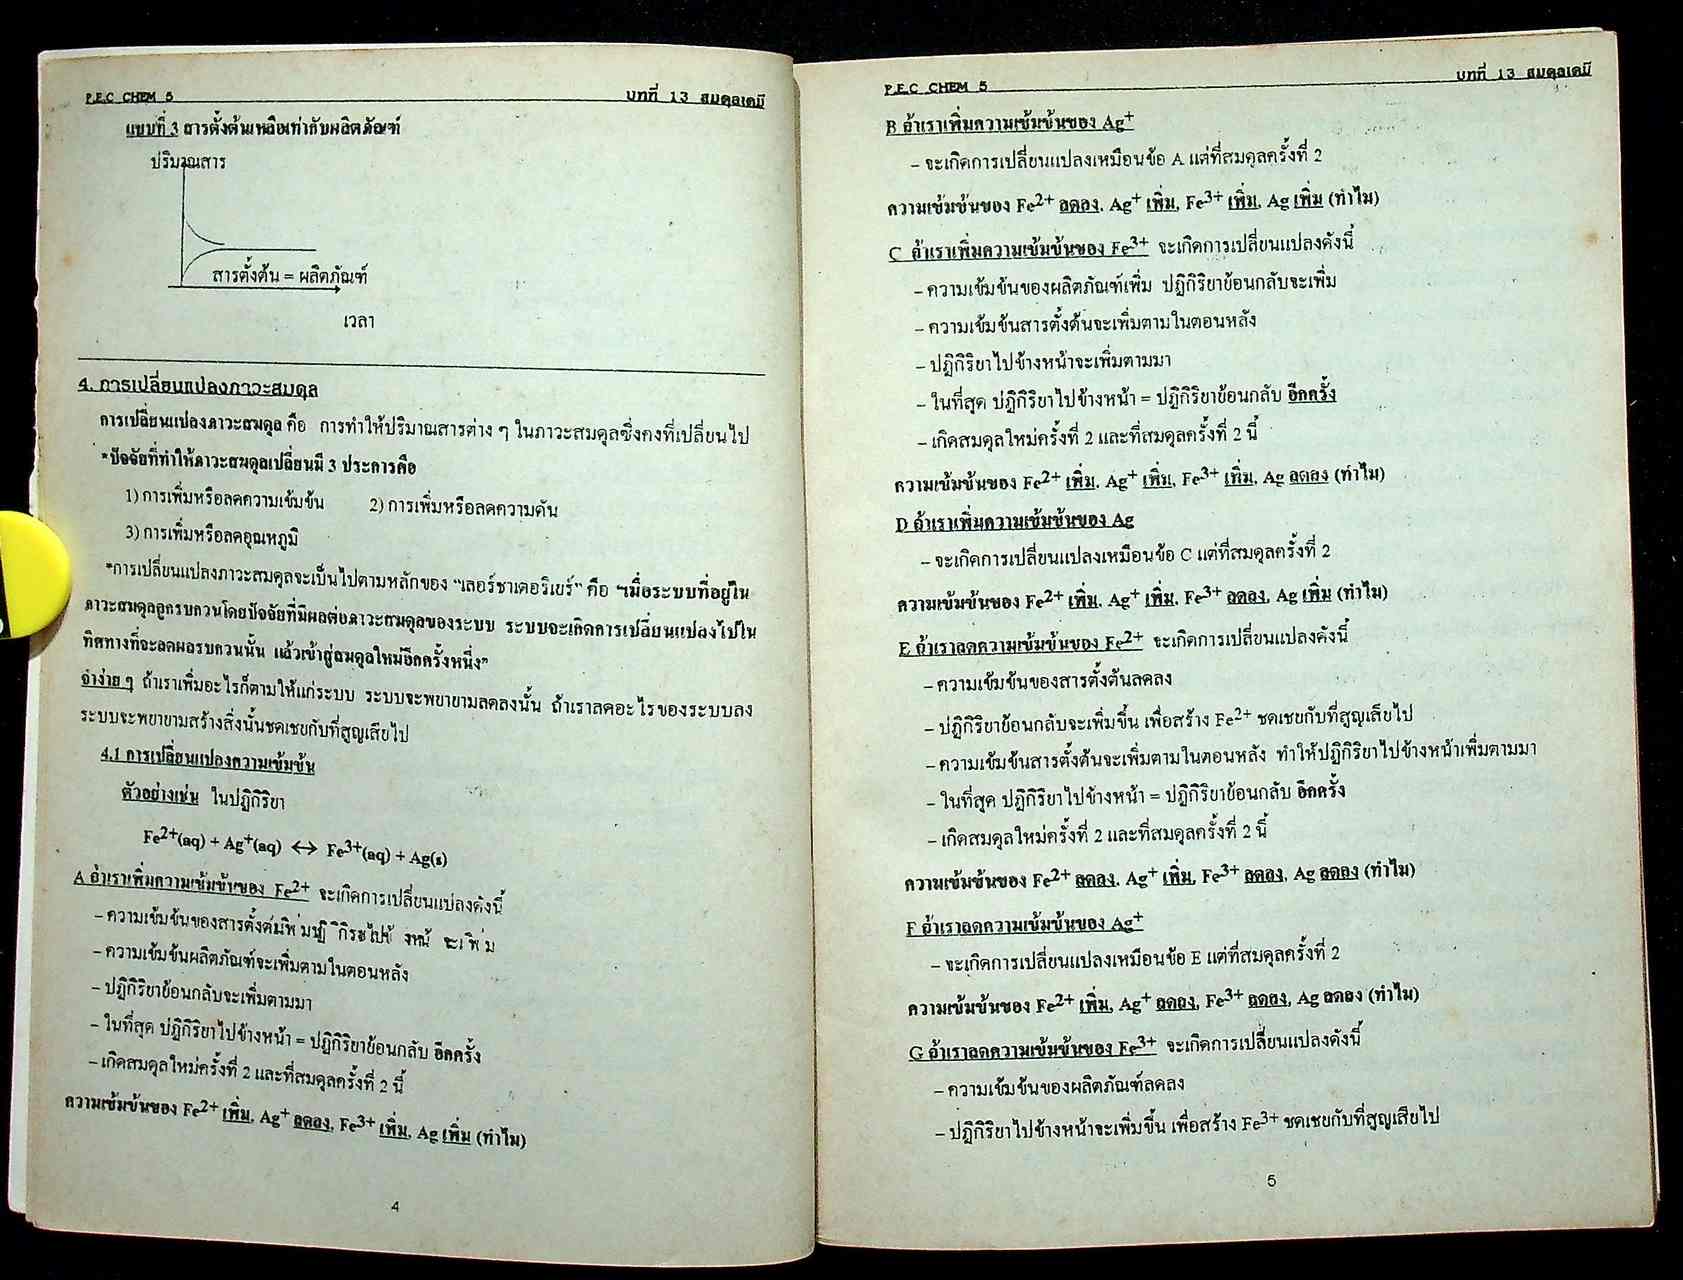 P.E.C CHEM 5
บทที่ 13 สมดุลเคมี
แบบที่ 3 สารตั้งต้นเหลือเท่ากับผลิตภัณฑ์
ปริมาณสาร
สารตั้งต้น = ผลิตภัณฑ์
เวลา
4. การเปลี่ยนแปลงภาวะสมดุล
การเปลี่ยนแปลงภาวะสมดุล คือ การทำให้ปริมาณสารต่าง ๆ ในภาวะสมดุลซึ่งคงที่เปลี่ยนไป
*ปัจจัยที่ทำให้ภาวะสมดุลเปลี่ยนมี 3 ประการคือ
1) การเพิ่มหรือลดความเข้มข้น 2) การเพิ่มหรือลดความดัน
3) การเพิ่มหรือลดอุณหภูมิ
*การเปลี่ยนแปลงภาวะสมดุลจะเป็นไปตามหลักของ "เลอร์ชาเตอริเยร์" คือ "เมื่อระบบที่อยู่ใน
ภาวะสมดุลถูกรบกวนโดยปัจจัยที่มีผลต่อภาวะสมดุลของระบบ ระบบจะเกิดการเปลี่ยนแปลงไปใน
ทิศทางที่จะลดผลรบกวนนั้น แล้วเข้าสู่สมดุลใหม่อีกครั้งหนึ่ง"
จำง่าย ๆ ถ้าเราเพิ่มอะไรก็ตามให้แก่ระบบ ระบบจะพยายามลดลงนั้น ถ้าเราลดอะไรของระบบลง
ระบบจะพยายามสร้างสิ่งนั้นชดเชยกับที่สูญเสียไป
4.1 การเปลี่ยนแปลงความเข้มข้น
ตัวอย่างเช่น ในปฏิกิริยา
Fe²⁺(aq) + Ag⁺(aq) ↔ Fe³⁺(aq) + Ag(s)
A ถ้าเราเพิ่มความเข้มข้นของ Fe²⁺ จะเกิดการเปลี่ยนแปลงดังนี้
– ความเข้มข้นของสารตั้งต้น
– ความเข้มข้นผลิตภัณฑ์จะเพิ่มตามในตอนหลัง
– ปฏิกิริยาย้อนกลับจะเพิ่มตามมา
– ในที่สุด ปฏิกิริยาไปข้างหน้า = ปฏิกิริยาย้อนกลับ อีกครั้ง
– เกิดสมดุลใหม่ครั้งที่ 2 และที่สมดุลครั้งที่ 2 นี้
ความเข้มข้นของ Fe²⁺ เพิ่ม, Ag⁺ ลดลง, Fe³⁺ เพิ่ม, Ag เพิ่ม (ทำไม)
4
P.E.C CHEM 5
บทที่ 13 สมดุลเคมี
B ถ้าเราเพิ่มความเข้มข้นของ Ag⁺
– จะเกิดการเปลี่ยนแปลงเหมือนข้อ A แต่ที่สมดุลครั้งที่ 2
ความเข้มข้นของ Fe²⁺ ลดลง, Ag⁺ เพิ่ม, Fe³⁺ เพิ่ม, Ag เพิ่ม (ทำไม)
C ถ้าเราเพิ่มความเข้มข้นของ Fe³⁺ จะเกิดการเปลี่ยนแปลงดังนี้
– ความเข้มข้นของผลิตภัณฑ์เพิ่ม ปฏิกิริยาย้อนกลับจะเพิ่ม
– ความเข้มข้นสารตั้งต้นจะเพิ่มตามในตอนหลัง
– ปฏิกิริยาไปข้างหน้าจะเพิ่มตามมา
– ในที่สุด ปฏิกิริยาไปข้างหน้า = ปฏิกิริยาย้อนกลับ อีกครั้ง
– เกิดสมดุลใหม่ครั้งที่ 2 และที่สมดุลครั้งที่ 2 นี้
ความเข้มข้นของ Fe²⁺ เพิ่ม, Ag⁺ เพิ่ม, Fe³⁺ เพิ่ม, Ag ลดลง (ทำไม)
D ถ้าเราเพิ่มความเข้มข้นของ Ag
– จะเกิดการเปลี่ยนแปลงเหมือนข้อ C แต่ที่สมดุลครั้งที่ 2
ความเข้มข้นของ Fe²⁺ เพิ่ม, Ag⁺ เพิ่ม, Fe³⁺ ลดลง, Ag เพิ่ม (ทำไม)
E ถ้าเราลดความเข้มข้นของ Fe²⁺ จะเกิดการเปลี่ยนแปลงดังนี้
– ความเข้มข้นของสารตั้งต้นลดลง
– ปฏิกิริยาย้อนกลับจะเพิ่มขึ้น เพื่อสร้าง Fe²⁺ ชดเชยกับที่สูญเสียไป
– ความเข้มข้นสารตั้งต้นจะเพิ่มตามในตอนหลัง ทำให้ปฏิกิริยาไปข้างหน้าเพิ่มตามมา
– ในที่สุด ปฏิกิริยาไปข้างหน้า = ปฏิกิริยาย้อนกลับ อีกครั้ง
– เกิดสมดุลใหม่ครั้งที่ 2 และที่สมดุลครั้งที่ 2 นี้
ความเข้มข้นของ Fe²⁺ ลดลง, Ag⁺ เพิ่ม, Fe³⁺ ลดลง, Ag ลดลง (ทำไม)
F ถ้าเราลดความเข้มข้นของ Ag⁺
– จะเกิดการเปลี่ยนแปลงเหมือนข้อ E แต่ที่สมดุลครั้งที่ 2
ความเข้มข้นของ Fe²⁺ เพิ่ม, Ag⁺ ลดลง, Fe³⁺ ลดลง, Ag ลดลง (ทำไม)
G ถ้าเราลดความเข้มข้นของ Fe³⁺ จะเกิดการเปลี่ยนแปลงดังนี้
– ความเข้มข้นของผลิตภัณฑ์ลดลง
– ปฏิกิริยาไปข้างหน้าจะเพิ่มขึ้น เพื่อสร้าง Fe³⁺ ชดเชยกับที่สูญเสียไป
5